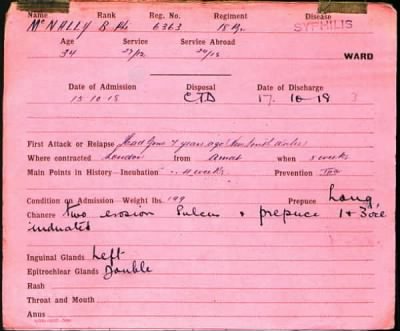 Name Rank Reg. No. Regiment Disease
McNALLY B Pte 6363 18 Bn. SYPHILIS
Age Service Service Abroad
34 WARD
Date of Admission Disposal Date of Discharge
15 10 18 CTD 17. 10 18 3
First Attack or Relapse Had Gono 4 years ago New South Wales
Where contracted London from Amat when weeks
Main Points in History—Incubation 4 weeks Prevention
Condition on Admission—Weight lbs. 149 Prepuce Long
Chancre two erosion Sulcus + prepuce 1 & 3 oc
indurated
Inguinal Glands Left
Epitrochlear Glands Double
Rash
Throat and Mouth
Anus